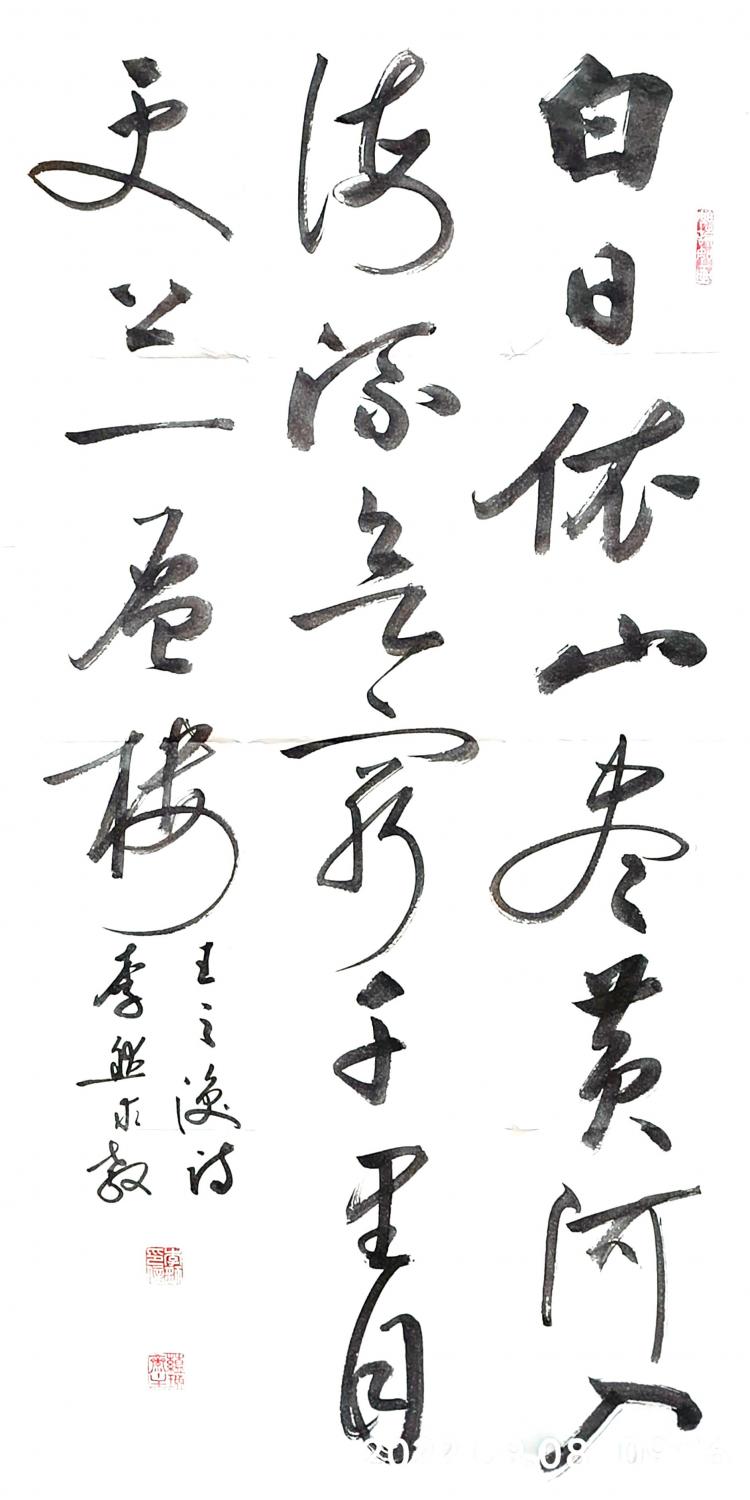 白日依山尽黄河入
海流欲穷千里目
更上一层楼
王之涣诗
李求教
08